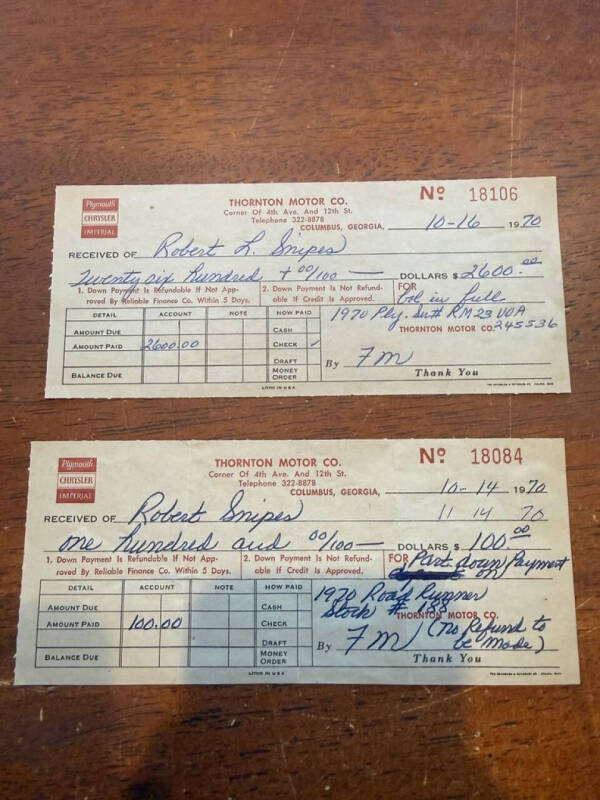 Plymouth
CHRYSLER
IMPERIAL
THORNTON MOTOR CO.
Corner Of 4th Ave. And 12th St.
Telephone 322-8878
COLUMBUS, GEORGIA,
Nº 18106
10-16 1970
RECEIVED OF Robert L. Snipes
Twenty six hundred + 00/100 — DOLLARS $ 2600.00
1. Down Payment Is Refundable If Not Approved By Reliable Finance Co. Within 5 Days.
2. Down Payment Is Not Refundable If Credit Is Approved.
FOR bal in full
1970 Ply. RM23 V0A
245536
THORNTON MOTOR CO.
DETAIL ACCOUNT NOTE HOW PAID
AMOUNT DUE CASH
AMOUNT PAID 2600.00 CHECK ✓
DRAFT
BALANCE DUE MONEY ORDER
By FM
Thank You
LITHO IN U S A
Plymouth
CHRYSLER
IMPERIAL
THORNTON MOTOR CO.
Corner Of 4th Ave. And 12th St.
Telephone 322-8878
COLUMBUS, GEORGIA,
Nº 18084
10-14 1970
11 14 70
RECEIVED OF Robert Snipes
one hundred and 00/100 — DOLLARS $ 100.00
1. Down Payment Is Refundable If Not Approved By Reliable Finance Co. Within 5 Days.
2. Down Payment Is Not Refundable If Credit Is Approved.
FOR Part down Payment
on
1970 Road Runner
Stock # 188
THORNTON MOTOR CO.
(No Refund to
be Made)
DETAIL ACCOUNT NOTE HOW PAID
AMOUNT DUE CASH
AMOUNT PAID 100.00 CHECK
DRAFT
BALANCE DUE MONEY ORDER
By FM
Thank You
LITHO IN U S A